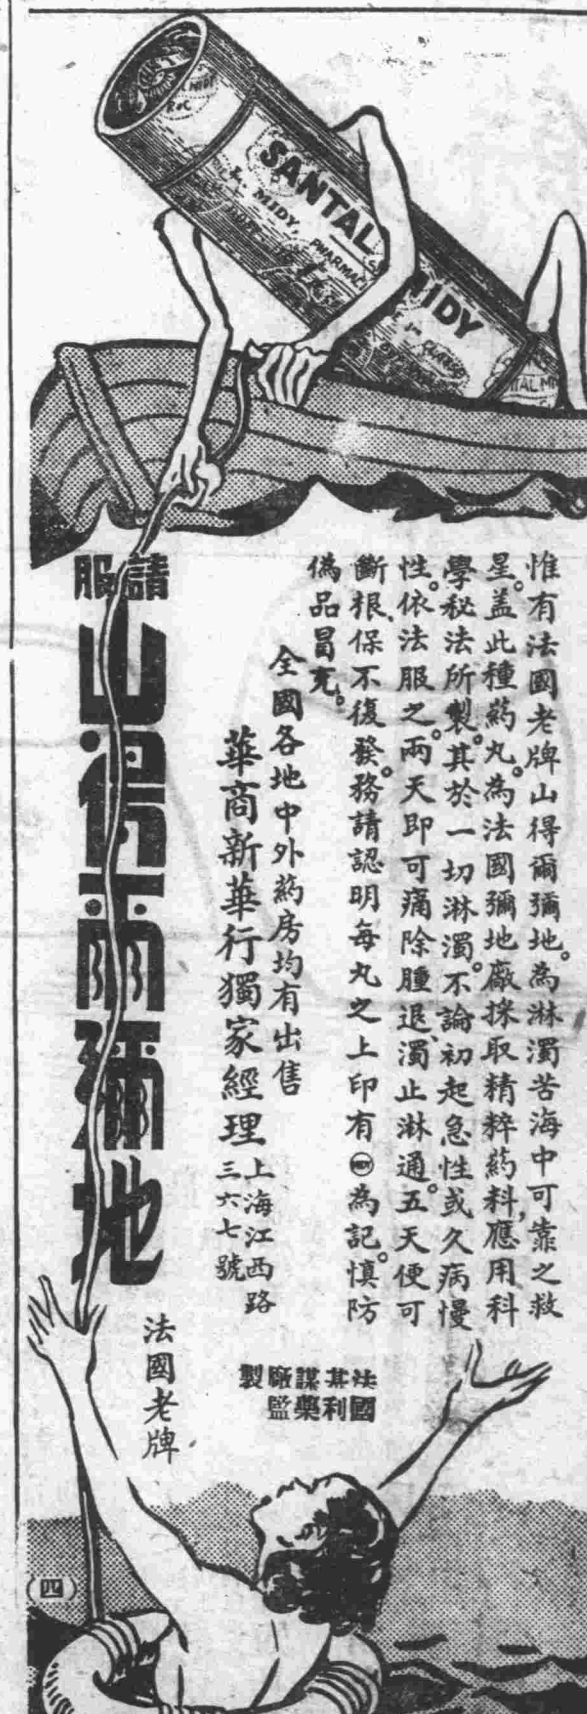 SANTAL MIDY
L. MIDY,
PHARMAC
請服
山得爾彌地
惟有法國老牌山得爾彌地。為淋濁苦海中可靠之救
星。盖此種藥丸。為法國彌地廠採取精粹葯料,應用科
學秘法所製。其於一切淋濁。不論初起急性或久病慢
性。依法服之。兩天即可痛除腫退、濁止淋通。五天便可
斷根、保不復發。務請認明每丸之上印有MIDY為記。慎防
偽品冒充。
全國各地中外葯房均有出售
華商新華行獨家經理
上海江西路
三六七號
法國
其利
謀藥
廠監
製
法國老牌
(四)